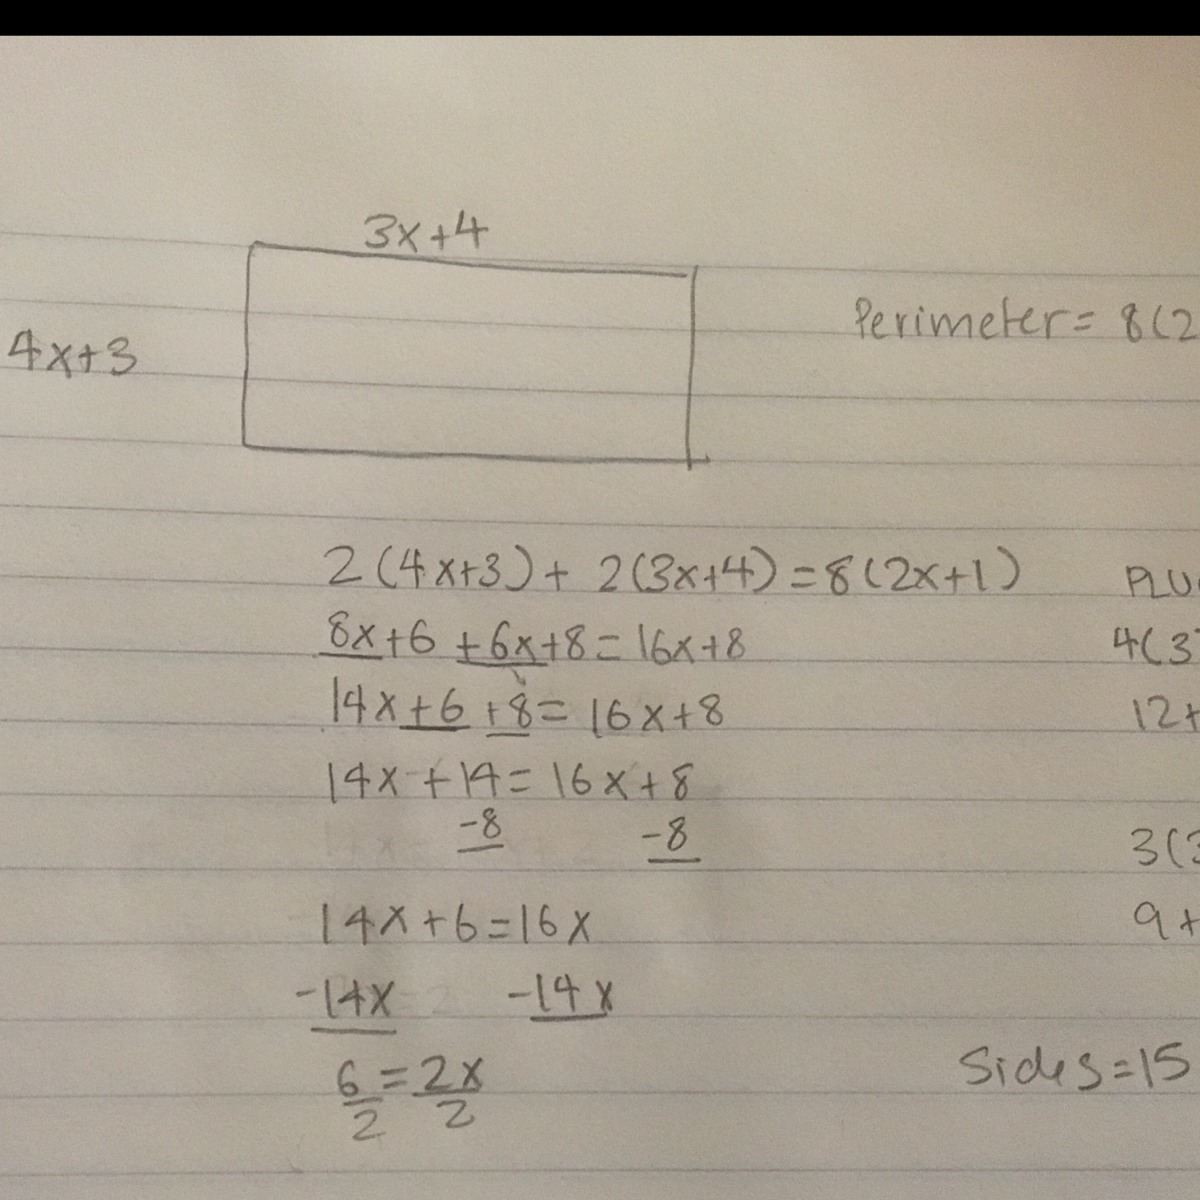 3x+4
4x+3
Perimeter= 8(2
2(4x+3)+ 2(3x+4)=8(2x+1)
8x+6 +6x+8=16x+8
14x+6 +8= 16x+8
14x+14=16x+8
-8 -8
14x+6=16x
-14x -14x
6/2=2x/2
4(3
12+
3(3
9+
Sides=15